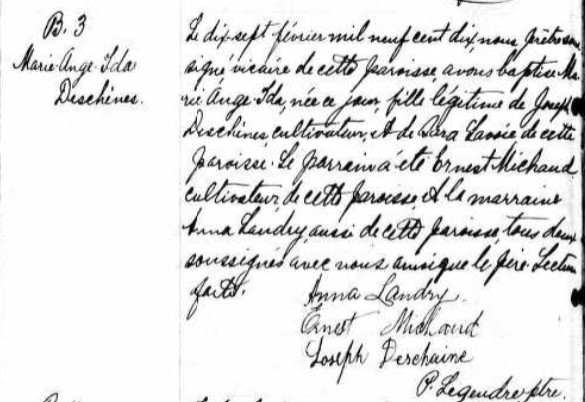 B. 3
Marie-Ange-Ida
Deschènes.
Le dix-sept février mil neuf cent dix, nous prêtre sou
signé vicaire de cette paroisse, avons baptisé Ma
rie Ange-Ida, née ce jour, fille légitime de Joseph
Deschènes, cultivateur, et de Sara Lavoie de cette
paroisse. Le parrain a été Ernest Michaud
cultivateur de cette paroisse, et la marraine
Anna Landry, aussi de cette paroisse, tous deux
soussignés avec nous ainsi que le père. Lecture
faite.
Anna Landry.
Ernest Michaud
Joseph Deschaine
P. Legendre ptre.